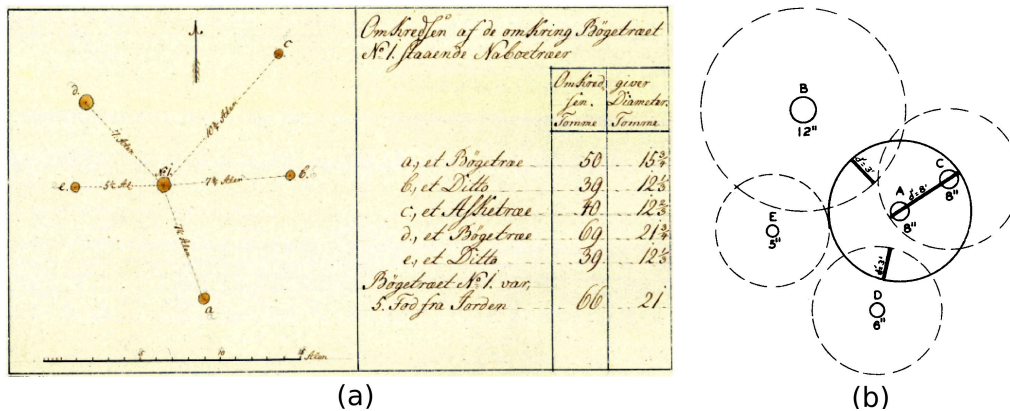 c
d.
10¾ Alen
7 Alen
No 1.
e.
5¼ Al
7¼ Alen
b.
7¾ Alen
a
5
10
15 Alen
Omkredsen af de omkring Bögetræet
No 1. staaende Naboetræer
Omkred giver
sen. Diameter.
Tomme Tomme
a, et Bögetræ 50 15¾
b, et Ditto 39 12⅓
c, et Asketræ 40 12⅔
d, et Bögetræ 69 21¾
e, et Ditto 39 12⅓
Bögetræet No 1. var,
5. Fod fra Jorden 66 21
(a)
B
12"
d'=3'
C
8"
A
d'=8'
8"
E
5"
d'=3'
D
6"
(b)